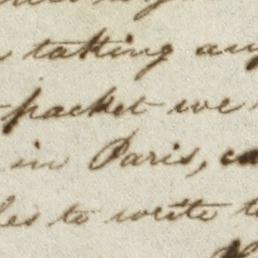 taking any
packet we
in Paris, ca
les to write to